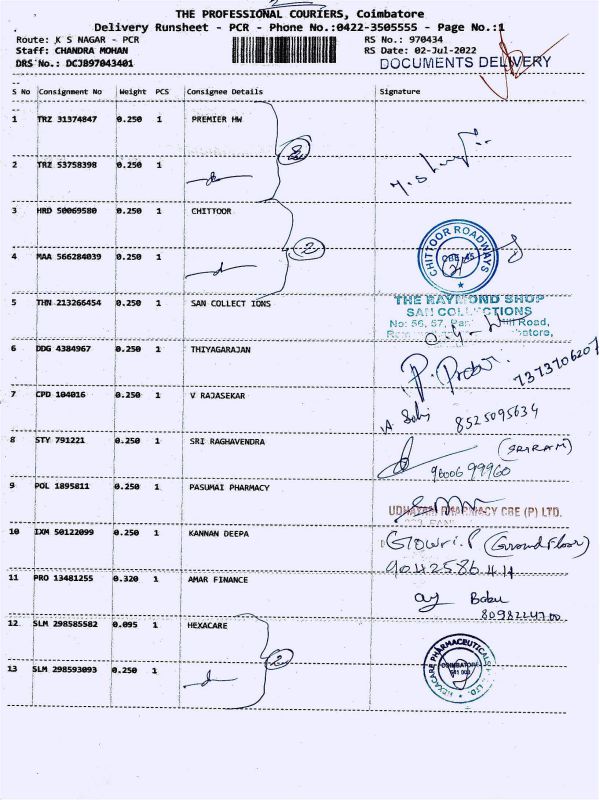 THE PROFESSIONAL COURIERS, Coimbatore
Delivery Runsheet - PCR - Phone No.:0422-3505555 - Page No.:1
Route: K S NAGAR - PCR RS No.: 970434
Staff: CHANDRA MOHAN RS Date: 02-Jul-2022
DRS No.: DCJB97043401 DOCUMENTS DELIVERY
S No Consignment No Weight PCS Consignee Details Signature
1 TRZ 31374847 0.250 1 PREMIER HW
2
2 TRZ 53758398 0.250 1
3 HRD 50069580 0.250 1 CHITTOOR
CHITTOOR ROADWAYS
CBE-45
4 MAA 566284039 0.250 1
2
5 THN 213266454 0.250 1 SAN COLLECT IONS
THE RAYMOND SHOP
SAN COLLECTIONS
No: 56, 57, Road,
6 DDG 4384967 0.250 1 THIYAGARAJAN
7373706207
7 CPD 104016 0.250 1 V RAJASEKAR
8525095634
8 STY 791221 0.250 1 SRI RAGHAVENDRA
(SRIRAM)
9600699960
9 POL 1895811 0.250 1 PASUMAI PHARMACY
UDHAYAM PHARMACY CBE (P) LTD.
10 IXM 50122099 0.250 1 KANNAN DEEPA
Gowri.P (Ground Floor)
9042586414
11 PRO 13481255 0.320 1 AMAR FINANCE
Babu
8098224700
12 SLM 298585582 0.095 1 HEXACARE
2
HEXACARE PHARMACEUTICALS LTD.
COIMBATORE
13 SLM 298593093 0.250 1